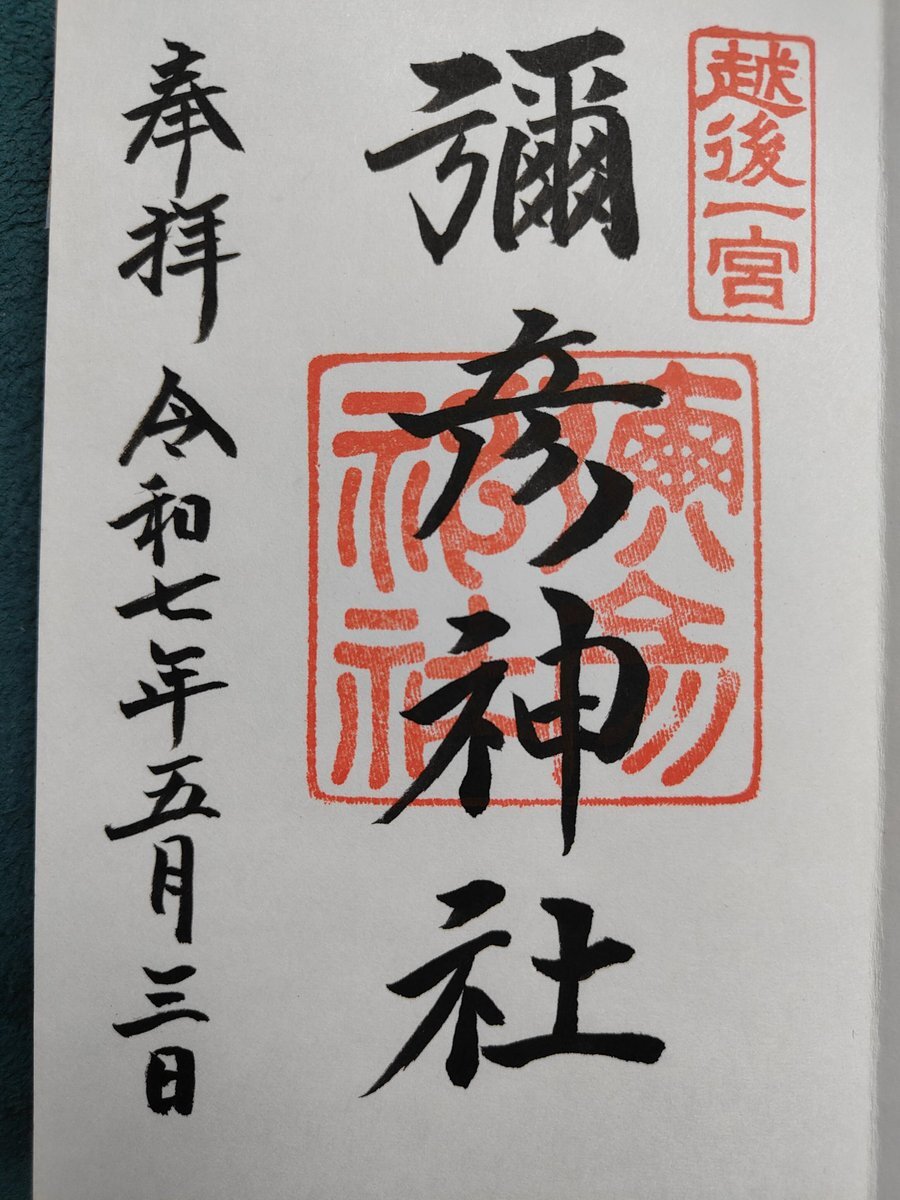 越後一宮
彌彦神社
奉拝 令和七年五月三日